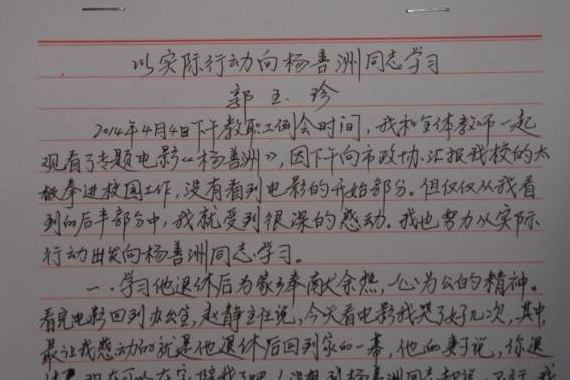 以实际行动向杨善洲同志学习
郭玉珍
2014年4月4日下午教职工例会时间，我和全体教师一起
观看了专题电影《杨善洲》，因下午向市政协汇报我校的太
极拳进校园工作，没有看到电影的开始部分。但仅仅从我看
到的后半部分中，我就受到很深的感动。我也努力以实际
行动出发向杨善洲同志学习。
一、学习他退休后为家乡奉献余热，一心为公的精神。
看完电影回到办公室，赵静主任说，今天看电影我哭了好几次，其中
最让我感动的就是他退休后回到家的一幕，他的妻子说，你退